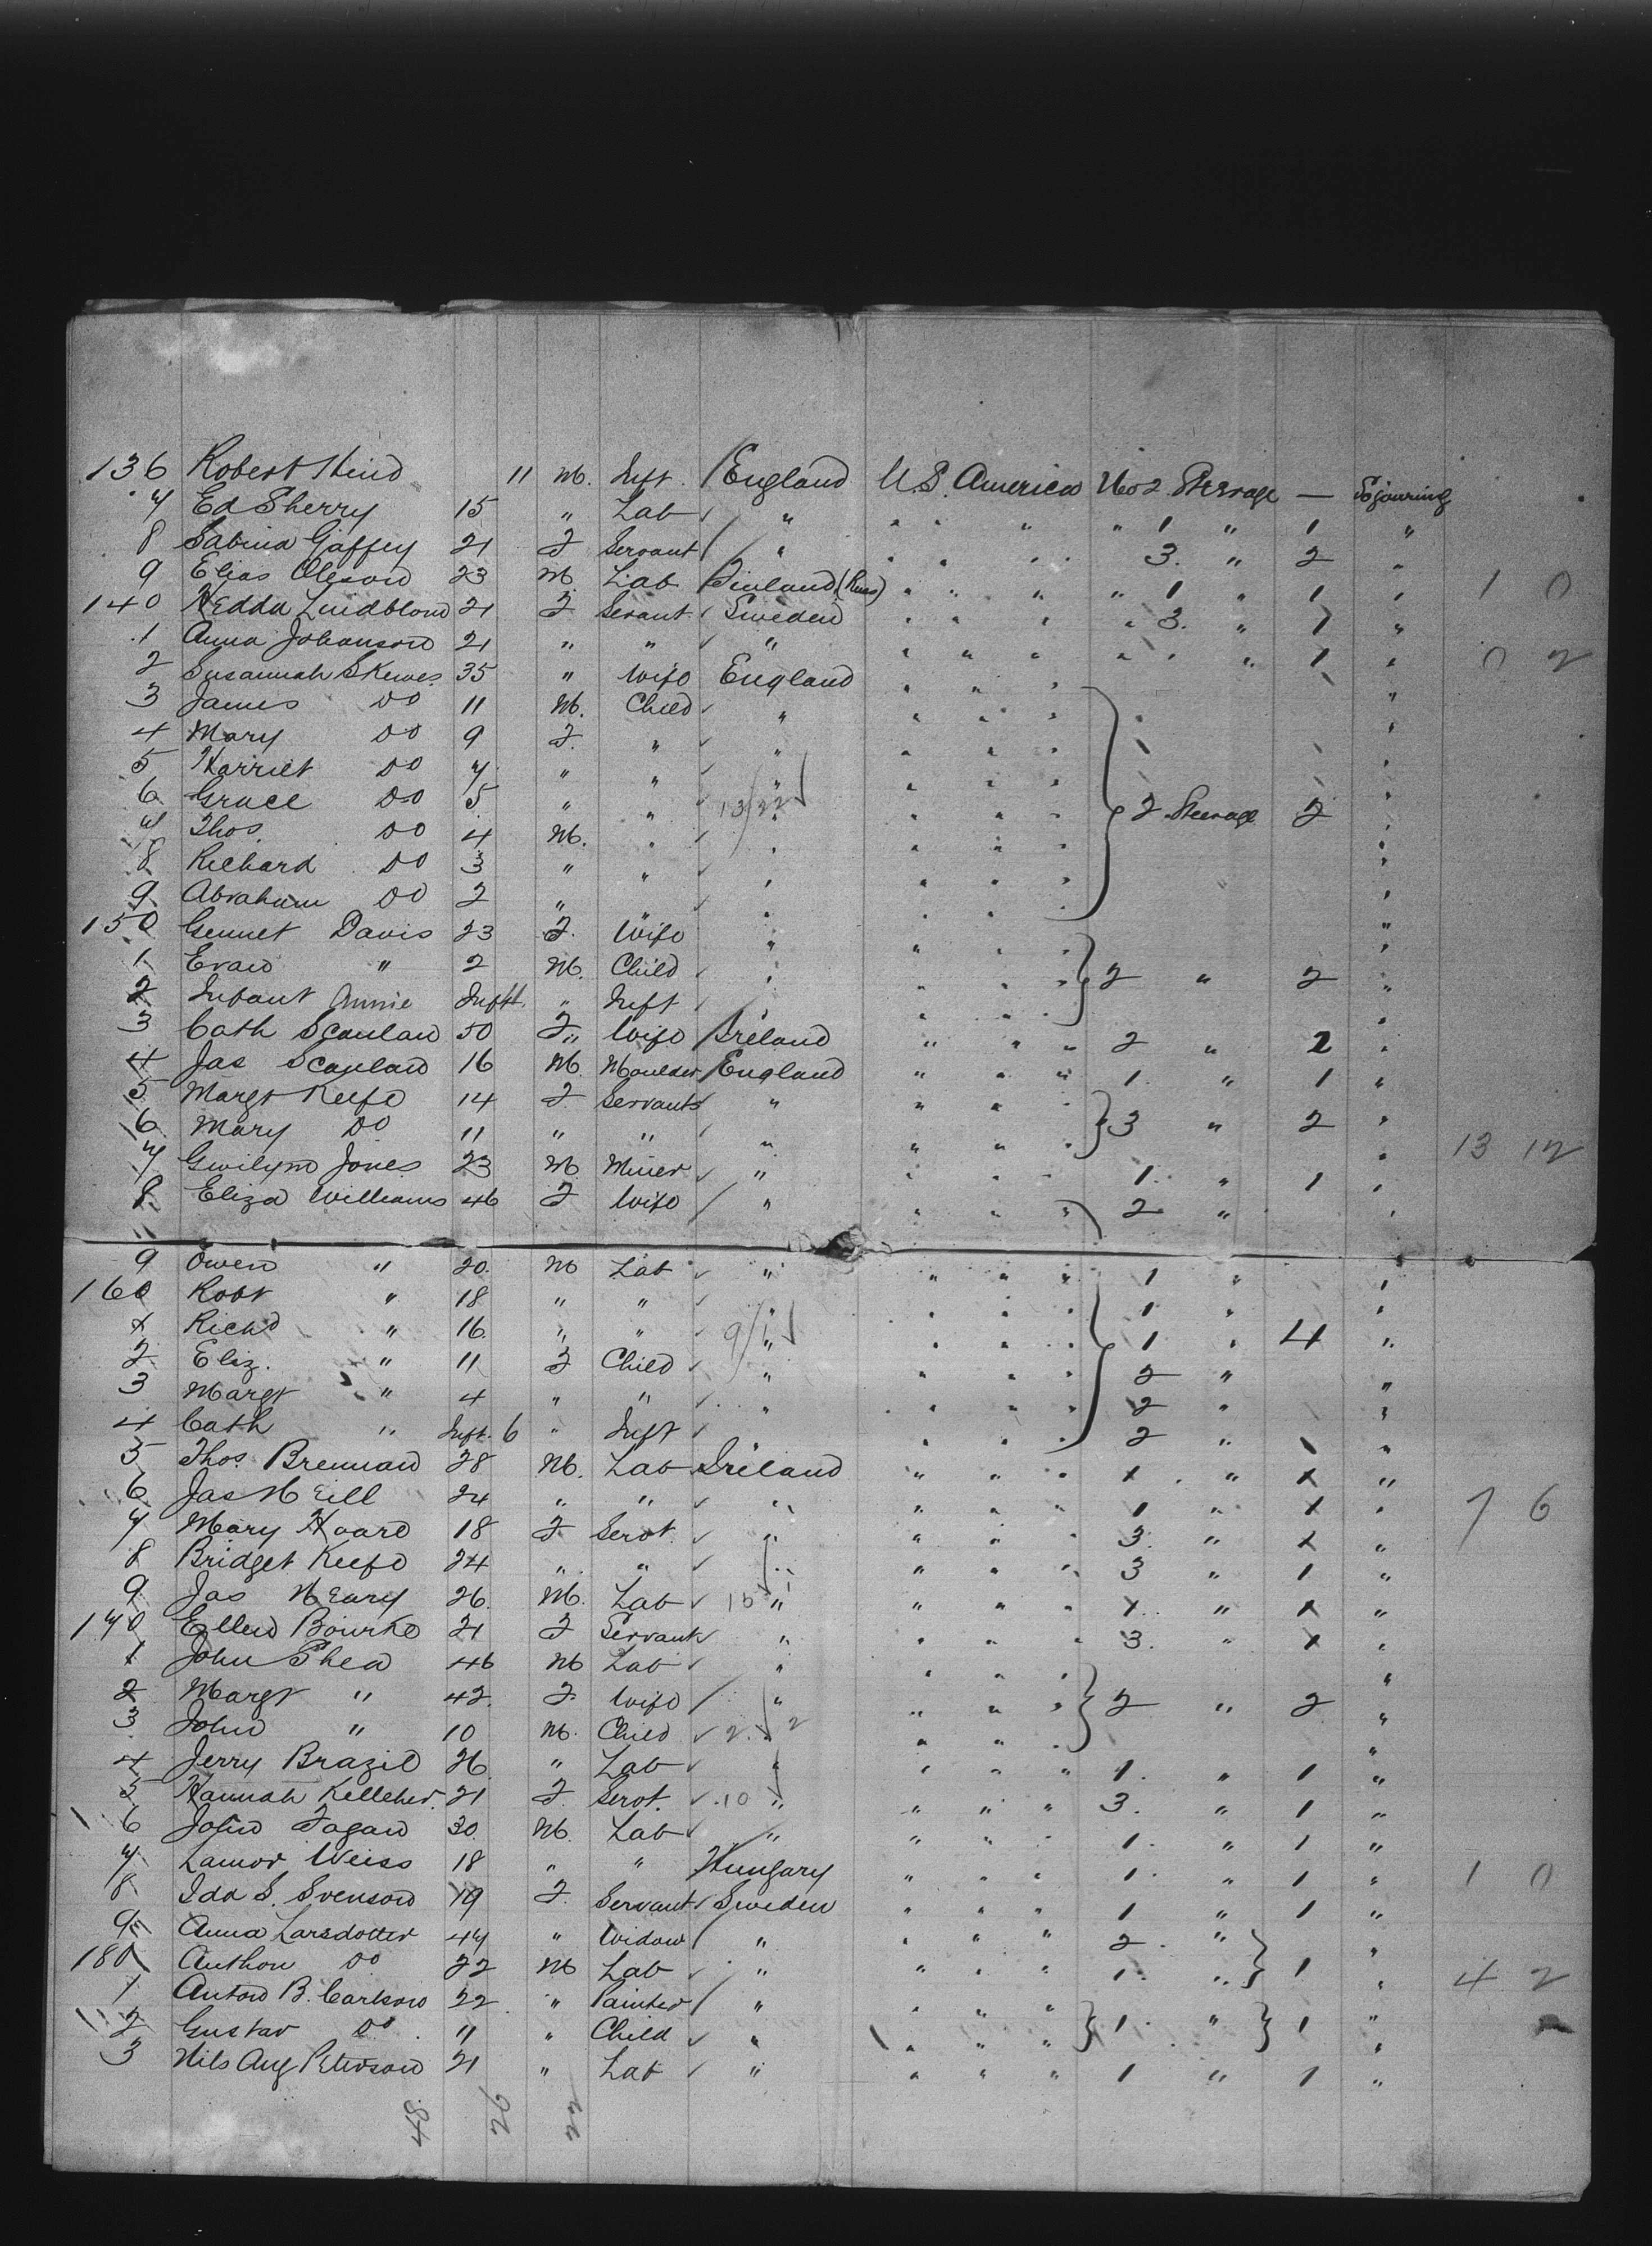 136 Robert Hind 11 M. Inft. England U.S. America No 2 Steerage — Sojouring
7 Ed Sherry 15 " Lab " " " " " 1 " 1 "
8 Sabina Gaffey 21 F Servant " " " " 3. " 2 "
9 Elias Oleson 23 M. Lab Finland (Russ) " " " " 1 " 1 " 1 0
140 Hedda Lindblond 21 F Servant Sweden " " " " 3. " 1 "
1 Anna Johanson 21 " " " " " " " " " 1 " 0 2
2 Susannah Skewes 35 " Wife England " " " "
3 James Do 11 M. Child " " " " "
4 Mary Do 9 F. " " " " " "
5 Harriet Do 7 " " " " " " "
6 Grace Do 5 " " 13/22 " " " 2 Steerage 2 "
7 Thos Do 4 M. " " " " " "
8 Richard Do 3 " " " " " " "
9 Abraham Do 2 " " " " " " "
150 Gennet Davis 23 F. Wife " " " " "
1 Evan " 2 M. Child " " " " 2 " 2 "
2 Infant Annie Inft. " Inft " " " "
3 Cath Scanlan 50 F " Wife Ireland " " " 2 " 2 "
4 Jas Scanlan 16 M. Moulder England " " " 1. " 1 "
5 Margt Keefe 14 F Servant " " " 3 " 2 "
6 Mary Do 11 " " " " " " "
7 Gwilym Jones 23 M. Miner " " " " 1. " 1 " 13 12
8 Eliza Williams 46 F Wife " " " " 2 " "
9 Owen " 20. M Lab " " " " 1 " "
160 Robt " 18 " " " " " " 1 " "
1 Richd " 16. " " 9/1 " " " 1 " 4 "
2 Eliz. " 11 F Child " " " " 2 "
3 Margt " 4 " " " " " " 2 " "
4 Cath " Inft. 6 " Inft " " " 2 " "
5 Thos. Brennan 28 M. Lab Ireland " " " 1 " 1 "
6 Jas Neill 24 " " " " " " 1 " 1 " 7 6
7 Mary Hoare 18 F Servt. " " " " 3. " 1 "
8 Bridget Keefe 24 " " " " " " 3 " 1 "
9 Jas Neary 26. M. Lab 15 " " " " 1. " 1 "
170 Ellen Bourke 21 F Servant " " " " 3. " 1 "
1 John Shea 46 M Lab " " " " "
2 Margt " 42. F Wife " " " " 2 " 2 "
3 John " 10 M. Child 2. 2 " " "
4 Jerry Brazil 26 " Lab " " " " 1. " 1 "
5 Hannah Kelleher. 21 F. Servt. 10 " " " " 3. " 1 "
6 John Fagan 30. M. Lab " " " " 1. " 1 "
7 Lamor Weiss 18 " " Hungary " " " 1. " 1 " 1 0
8 Ida S. Svenson 19 F. Servant Sweden " " " 1 " 1 "
9 Anna Larsdotter 47 " Widow " " " " 2. " "
180 Anthon Do 22 M Lab " " " " 1. " 1 " 4 2
1 Anton B. Carlson 22 " Painter " " " " "
2 Gustav Do. 11 " Child " " " " 1. " 1 "
3 Nils Aug Peterson 21 " Lab " " " " 1 " 1 "
48 26 22